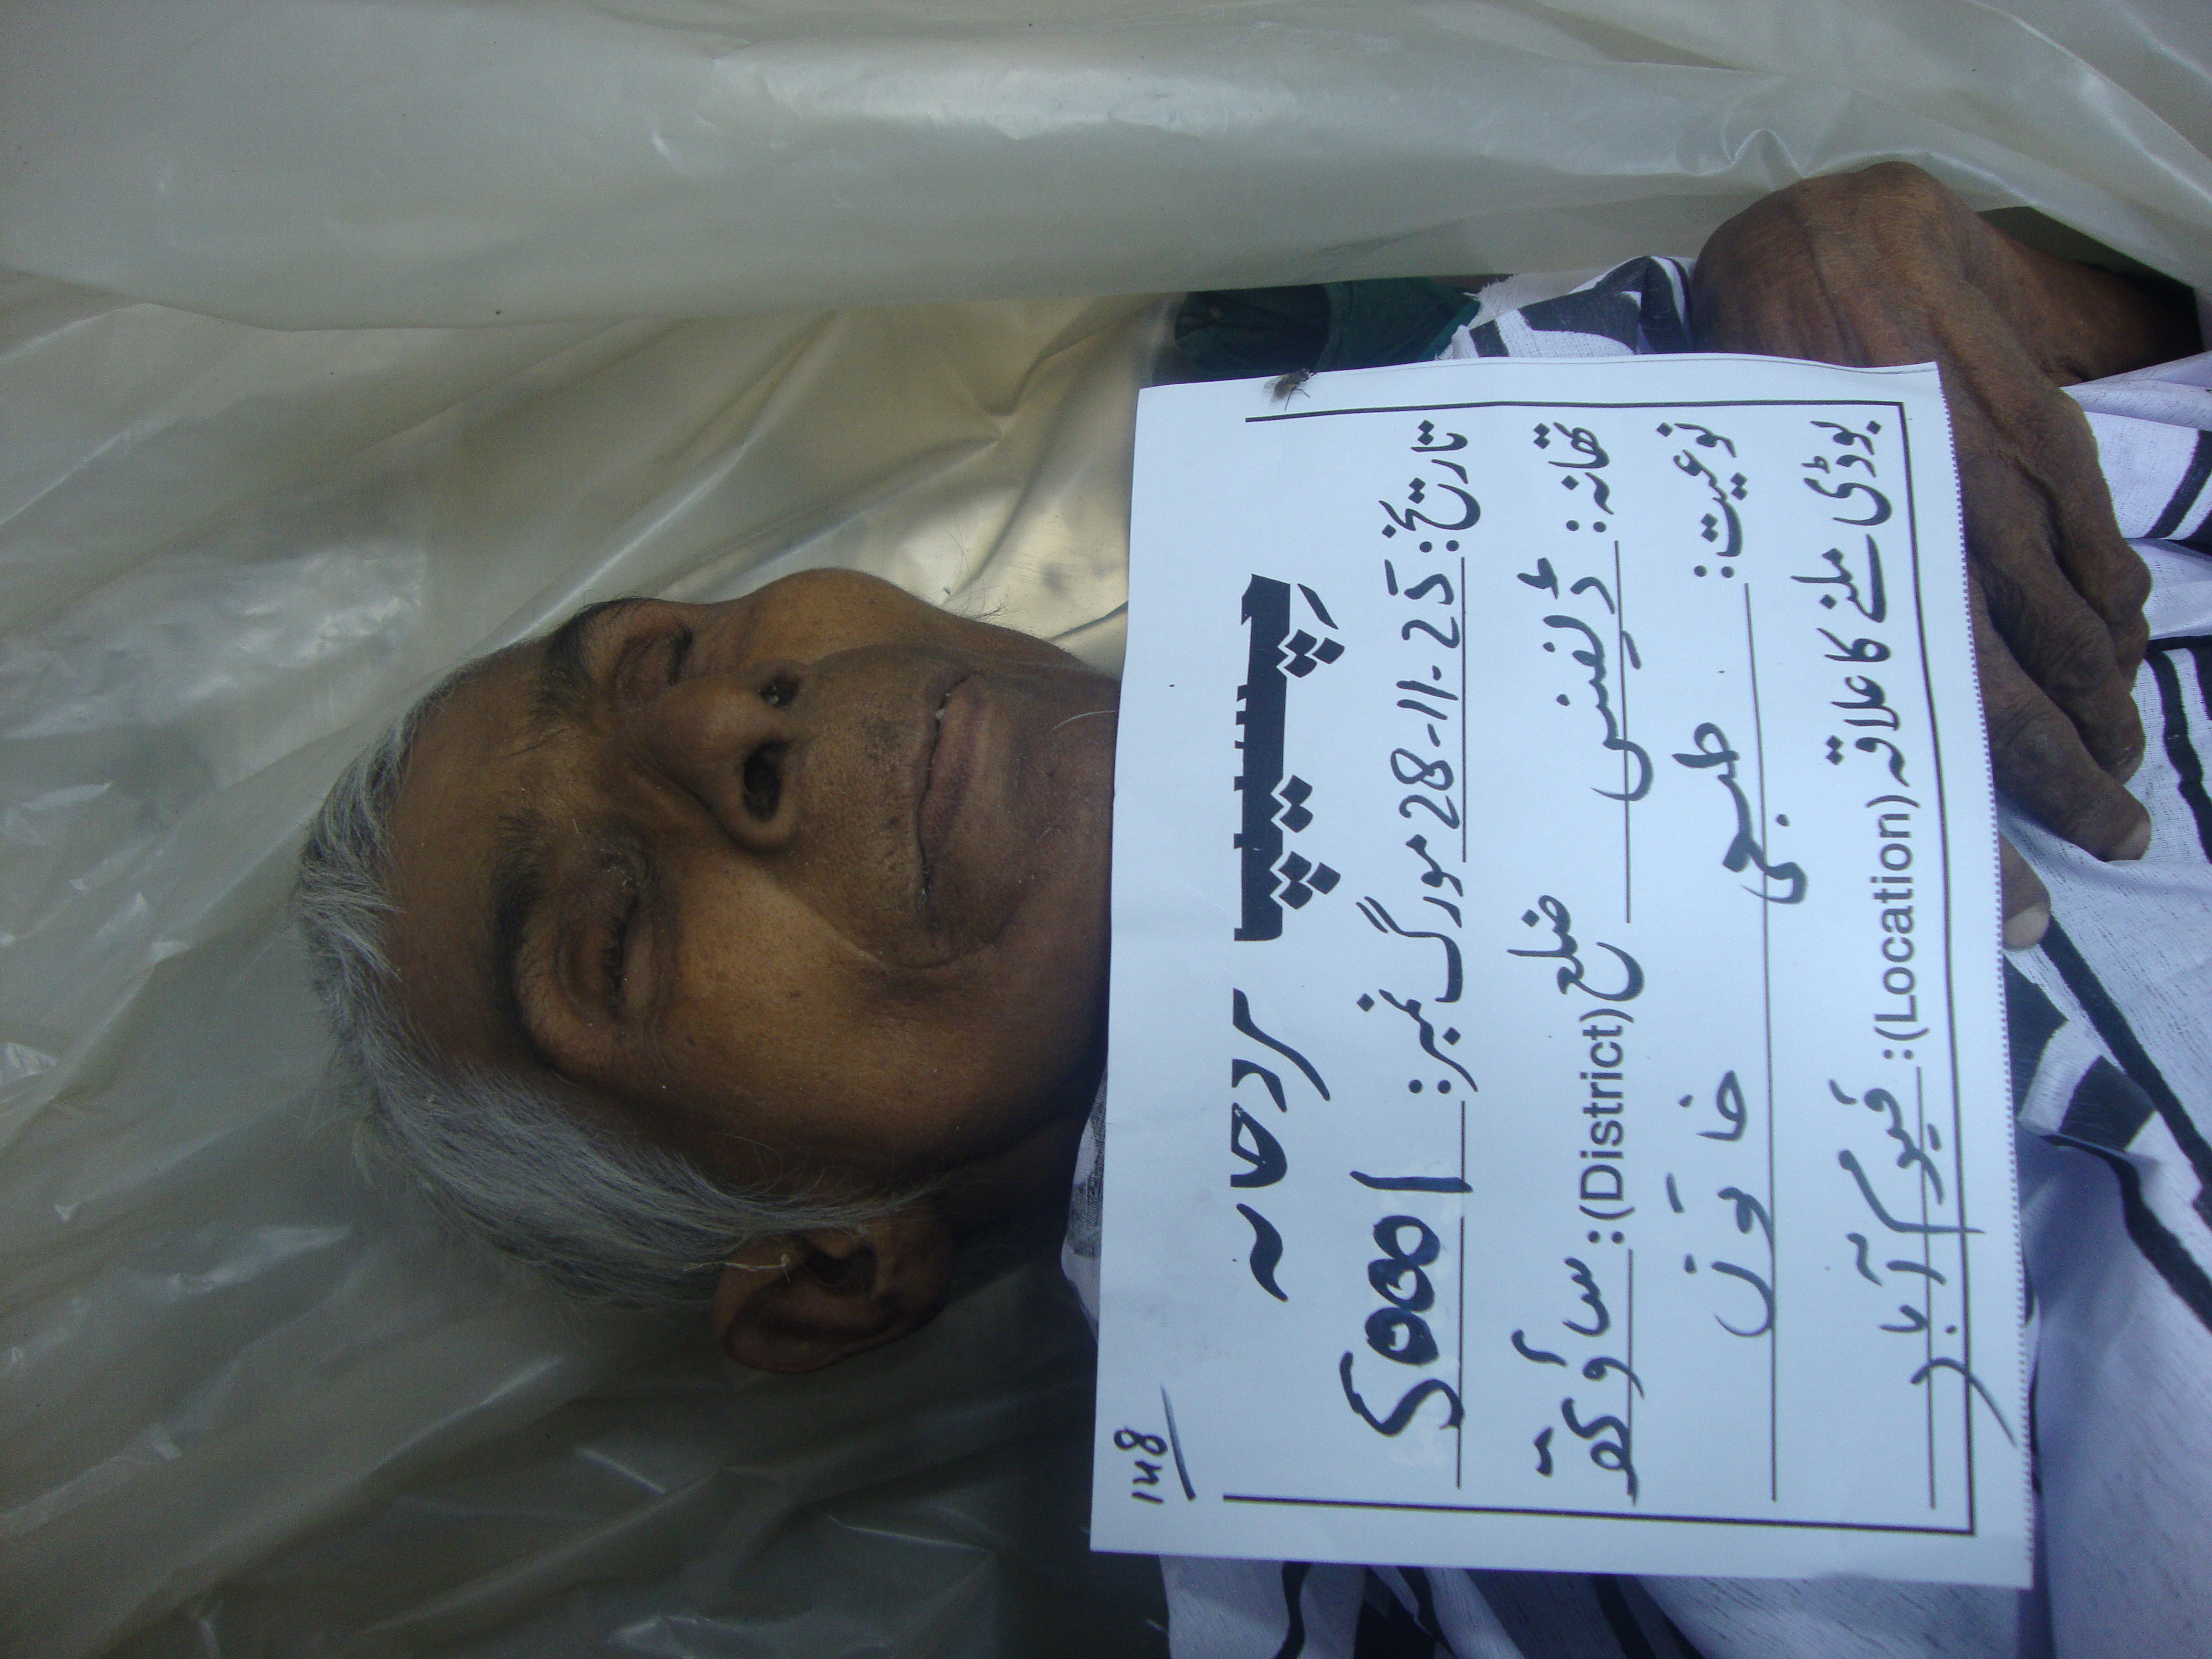 148
سرد خانہ چھیپا
تاریخ: 28-11-25 مورگ نمبر:
تھانہ: ڈیفنس ضلع (District): ساؤتھ
نوعیت: طبعی خاتون
بوڈی ملنے کا علاقہ (Location): قیوم آباد